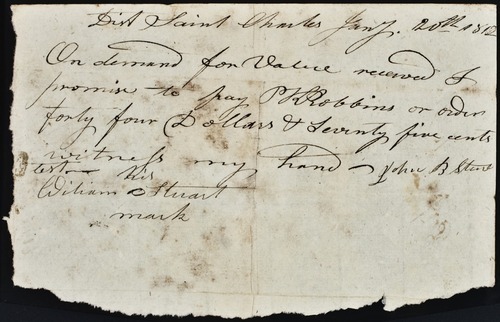 Dist Saint Charles Jany. 20th 1812
On demand for Value received I
promise to pay P K Robbins or order
forty four Dollars & Seventy five cents
witness my hand John B Stuart
test his
William Stuart
mark